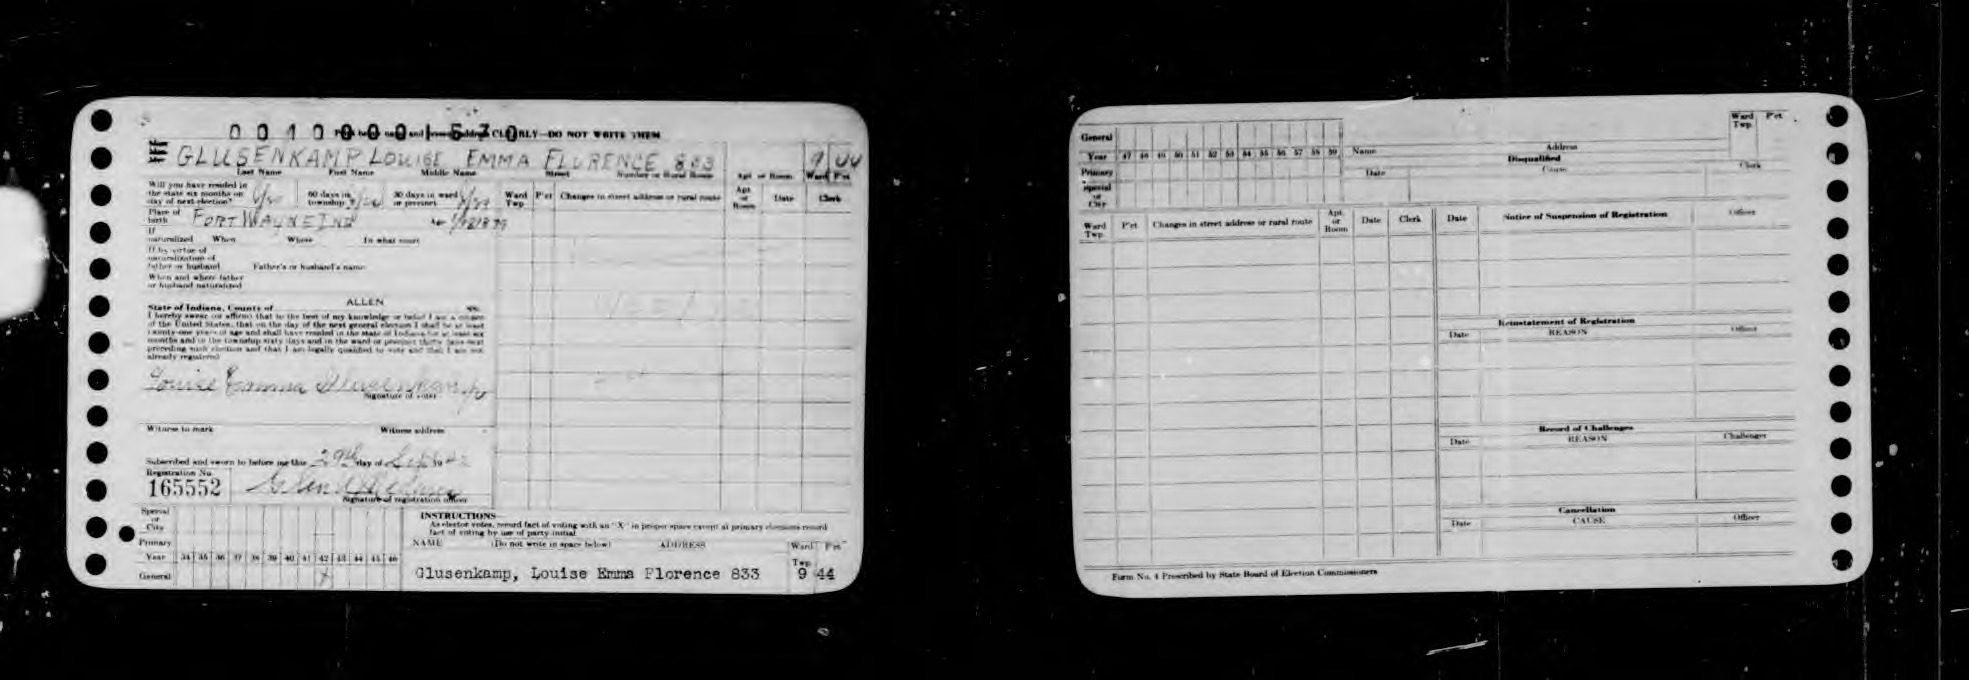 0010000 1570
CLEARLY—DO NOT WRITE THEM
GLUSENKAMP LOUISE EMMA FLORENCE 833 9 44
Last Name First Name Middle Name Street Number or Rural Route Apt or Room Ward P'ct
Will you have resided in the state six months on day of next election?
60 days in township
30 days in ward or precinct
Ward Twp P'ct Changes in street address or rural route Apt. or Room Date Clerk
Place of birth FORT WAYNE IND
If naturalized When Where In what court
If by virtue of naturalization of father or husband Father's or husband's name
When and where father or husband naturalized
ALLEN
State of Indiana, County of SS:
I hereby swear (or affirm) that to the best of my knowledge or belief I am a citizen
of the United States, that on the day of the next general election I shall be at least
twenty-one years of age and shall have resided in the state of Indiana for at least six
months and in the township sixty days and in the ward or precinct thirty days next
preceding such election and that I am legally qualified to vote and that I am not
already registered
Louise Emma Glusenkamp
Signature of voter
Witness to mark Witness address
Subscribed and sworn to before me this 29th day of Sept 19 42
Registration No.
165552
Signature of registration officer
Special or City
Primary
Year 34 35 36 37 38 39 40 41 42 43 44 45 46
General X
INSTRUCTIONS
As elector votes, record fact of voting with an "X" in proper space except at primary elections record
fact of voting by use of party initial
NAME (Do not write in space below) ADDRESS Ward Twp P'ct
Glusenkamp, Louise Emma Florence 833 9 44
General
Year 47 48 49 50 51 52 53 54 55 56 57 58 59
Primary
Special or City
Name Address Ward Twp. P'ct.
Disqualified
Date Cause Clerk
Ward Twp. P'ct Changes in street address or rural route Apt. or Room Date Clerk
Date Notice of Suspension of Registration Officer
Reinstatement of Registration
Date REASON Officer
Record of Challenges
Date REASON Challenger
Cancellation
Date CAUSE Officer
Form No. 4 Prescribed by State Board of Election Commissioners